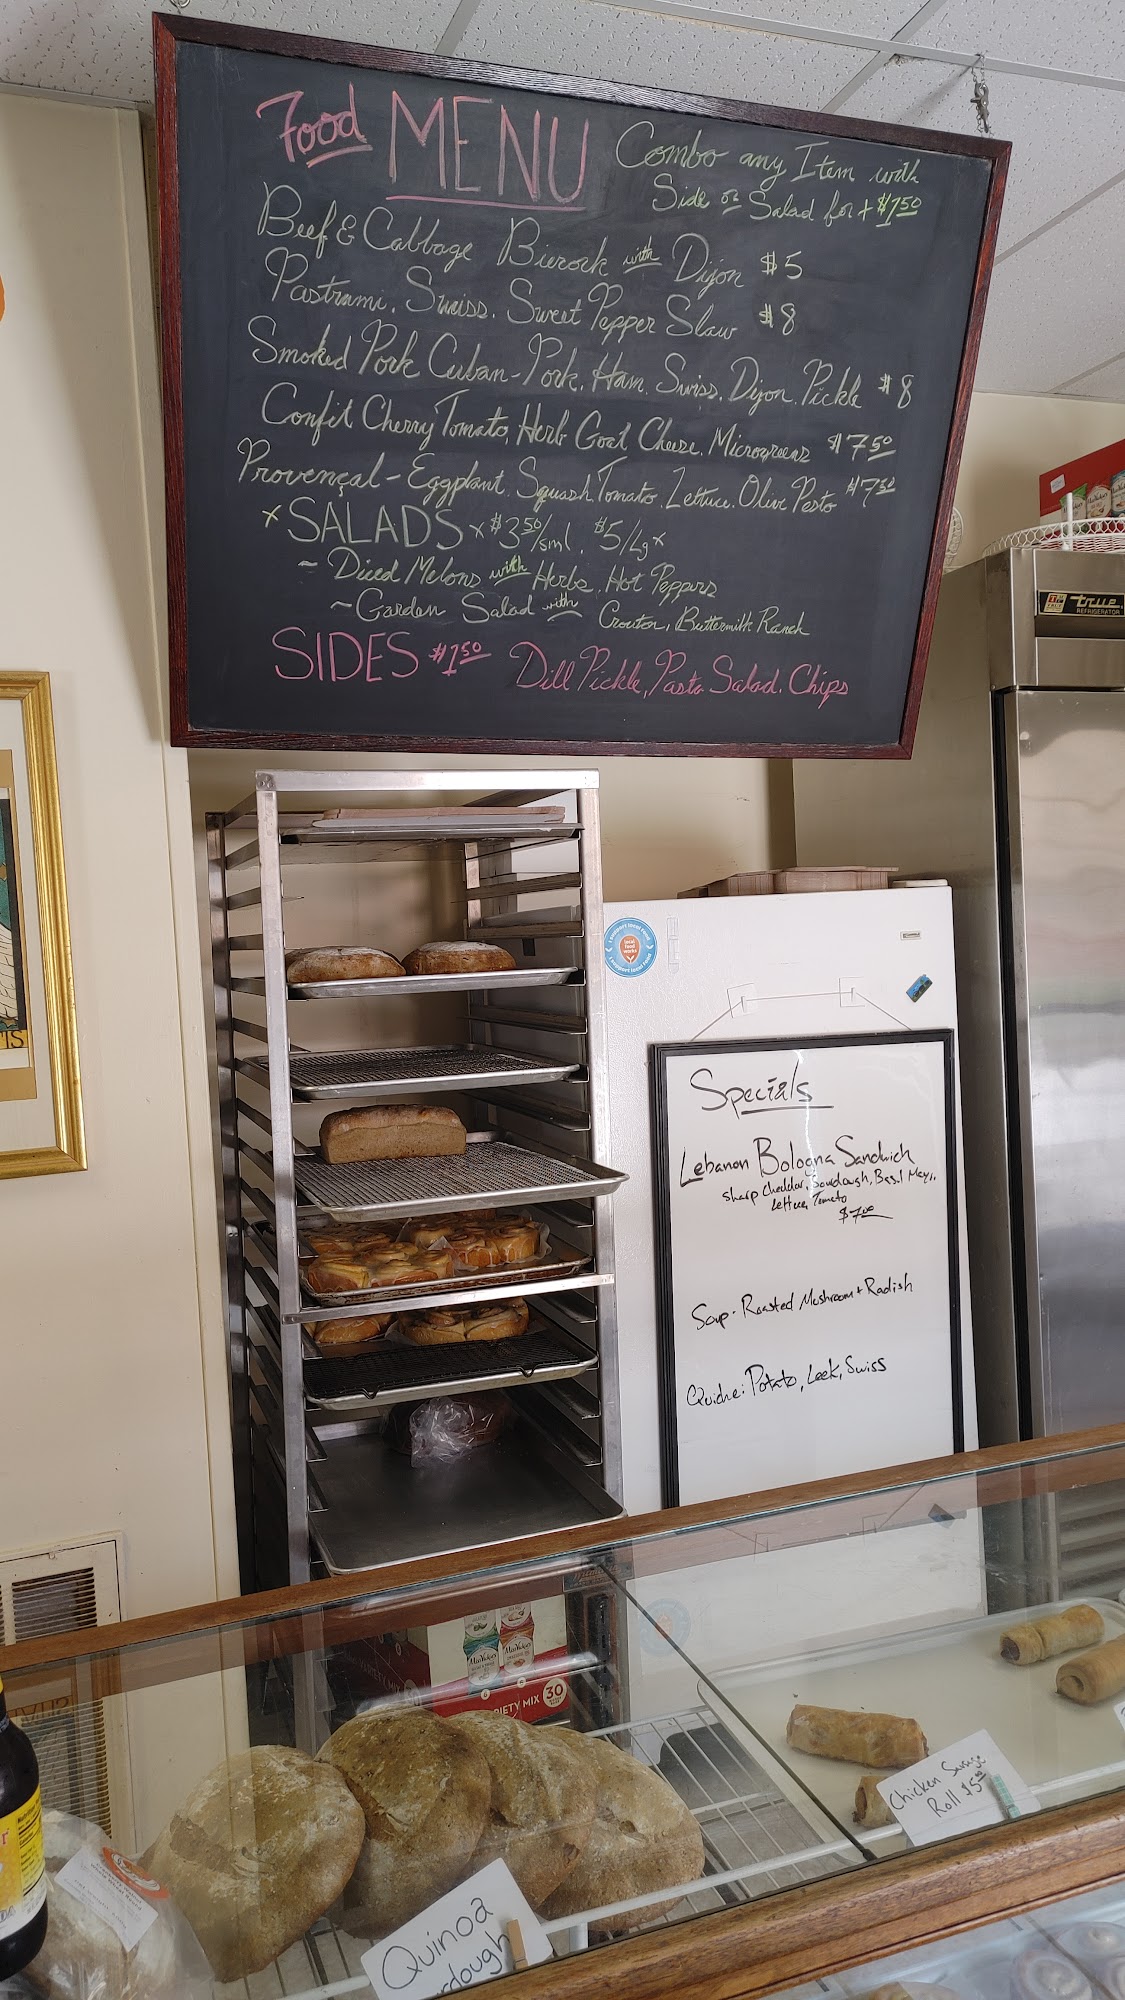 Food MENU
Combo any Item with
Side or Salad for + $1.50
Beef & Cabbage Bierock with Dijon $5
Pastrami, Swiss, Sweet Pepper Slaw $8
Smoked Pork Cuban - Pork, Ham, Swiss, Dijon, Pickle $8
Confit Cherry Tomato, Herb Goat Cheese, Microgreens $7.50
Provençal - Eggplant, Squash, Tomato, Lettuce, Olive Pesto $7.50
x SALADS x $3.50/sml, $5/Lg x
~ Diced Melons with Herbs, Hot Peppers
~ Garden Salad with Crouton, Buttermilk Ranch
SIDES $1.50 Dill Pickle, Pasta Salad, Chips
true
REFRIGERATOR
I support local food
local food works
I support local food
Specials
Lebanon Bologna Sandwich
sharp cheddar, Sourdough, Basil Mayo,
Lettuce, Tomato
$7.00
Soup - Roasted Mushroom + Radish
Quiche: Potato, Leek, Swiss
IS
VARIETY MIX 30
Chicken Sausage
Roll $5.00
Quinoa
rdough